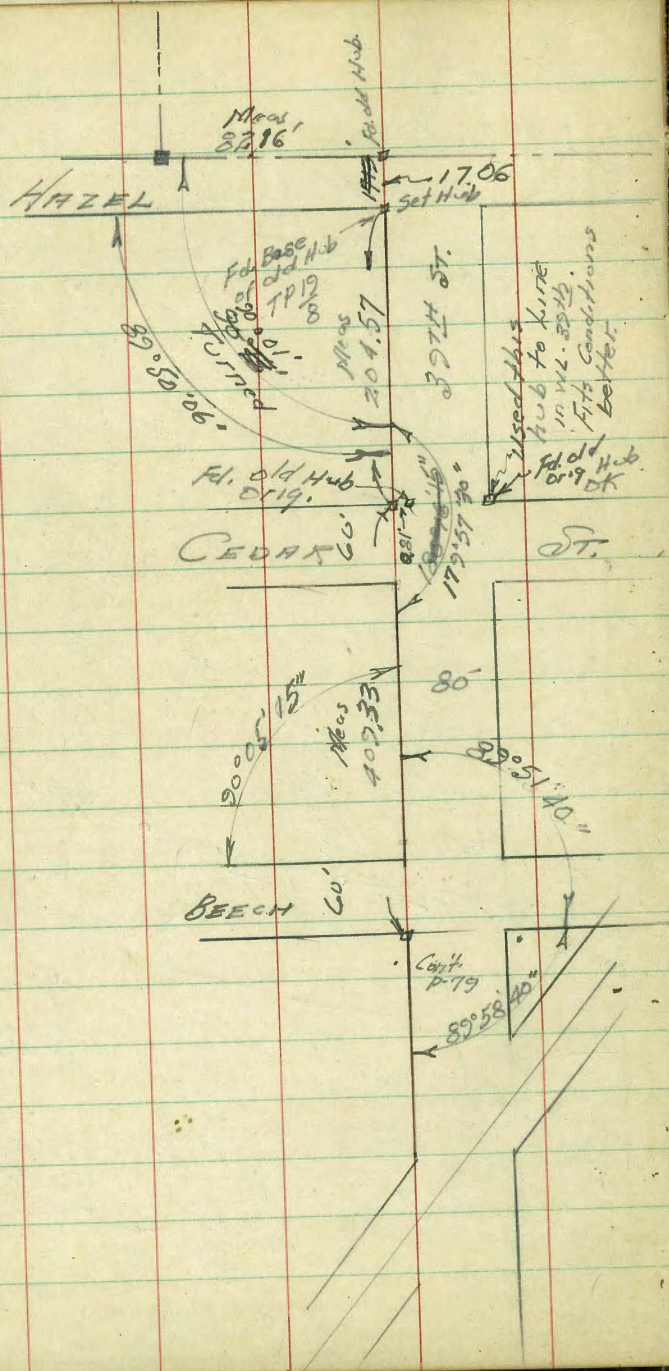 Meas.
82.96'
Fd. old Hub
17.06
Set Hub
HAZEL
Fd. Base
or old Hub
TP 19
Turned
Meas
204.57
39TH ST.
Used this
hub to Line
in WL. 39th.
Fits Conditions
better.
Fd. old Hub
Orig.
Fd. old Hub
Orig OK
CEDAR
60'
ST.
179°57'30"
80'
90°05'15"
Meas
409.33
89°51'40"
BEECH
60'
Con't.
P-79
89°58'40"